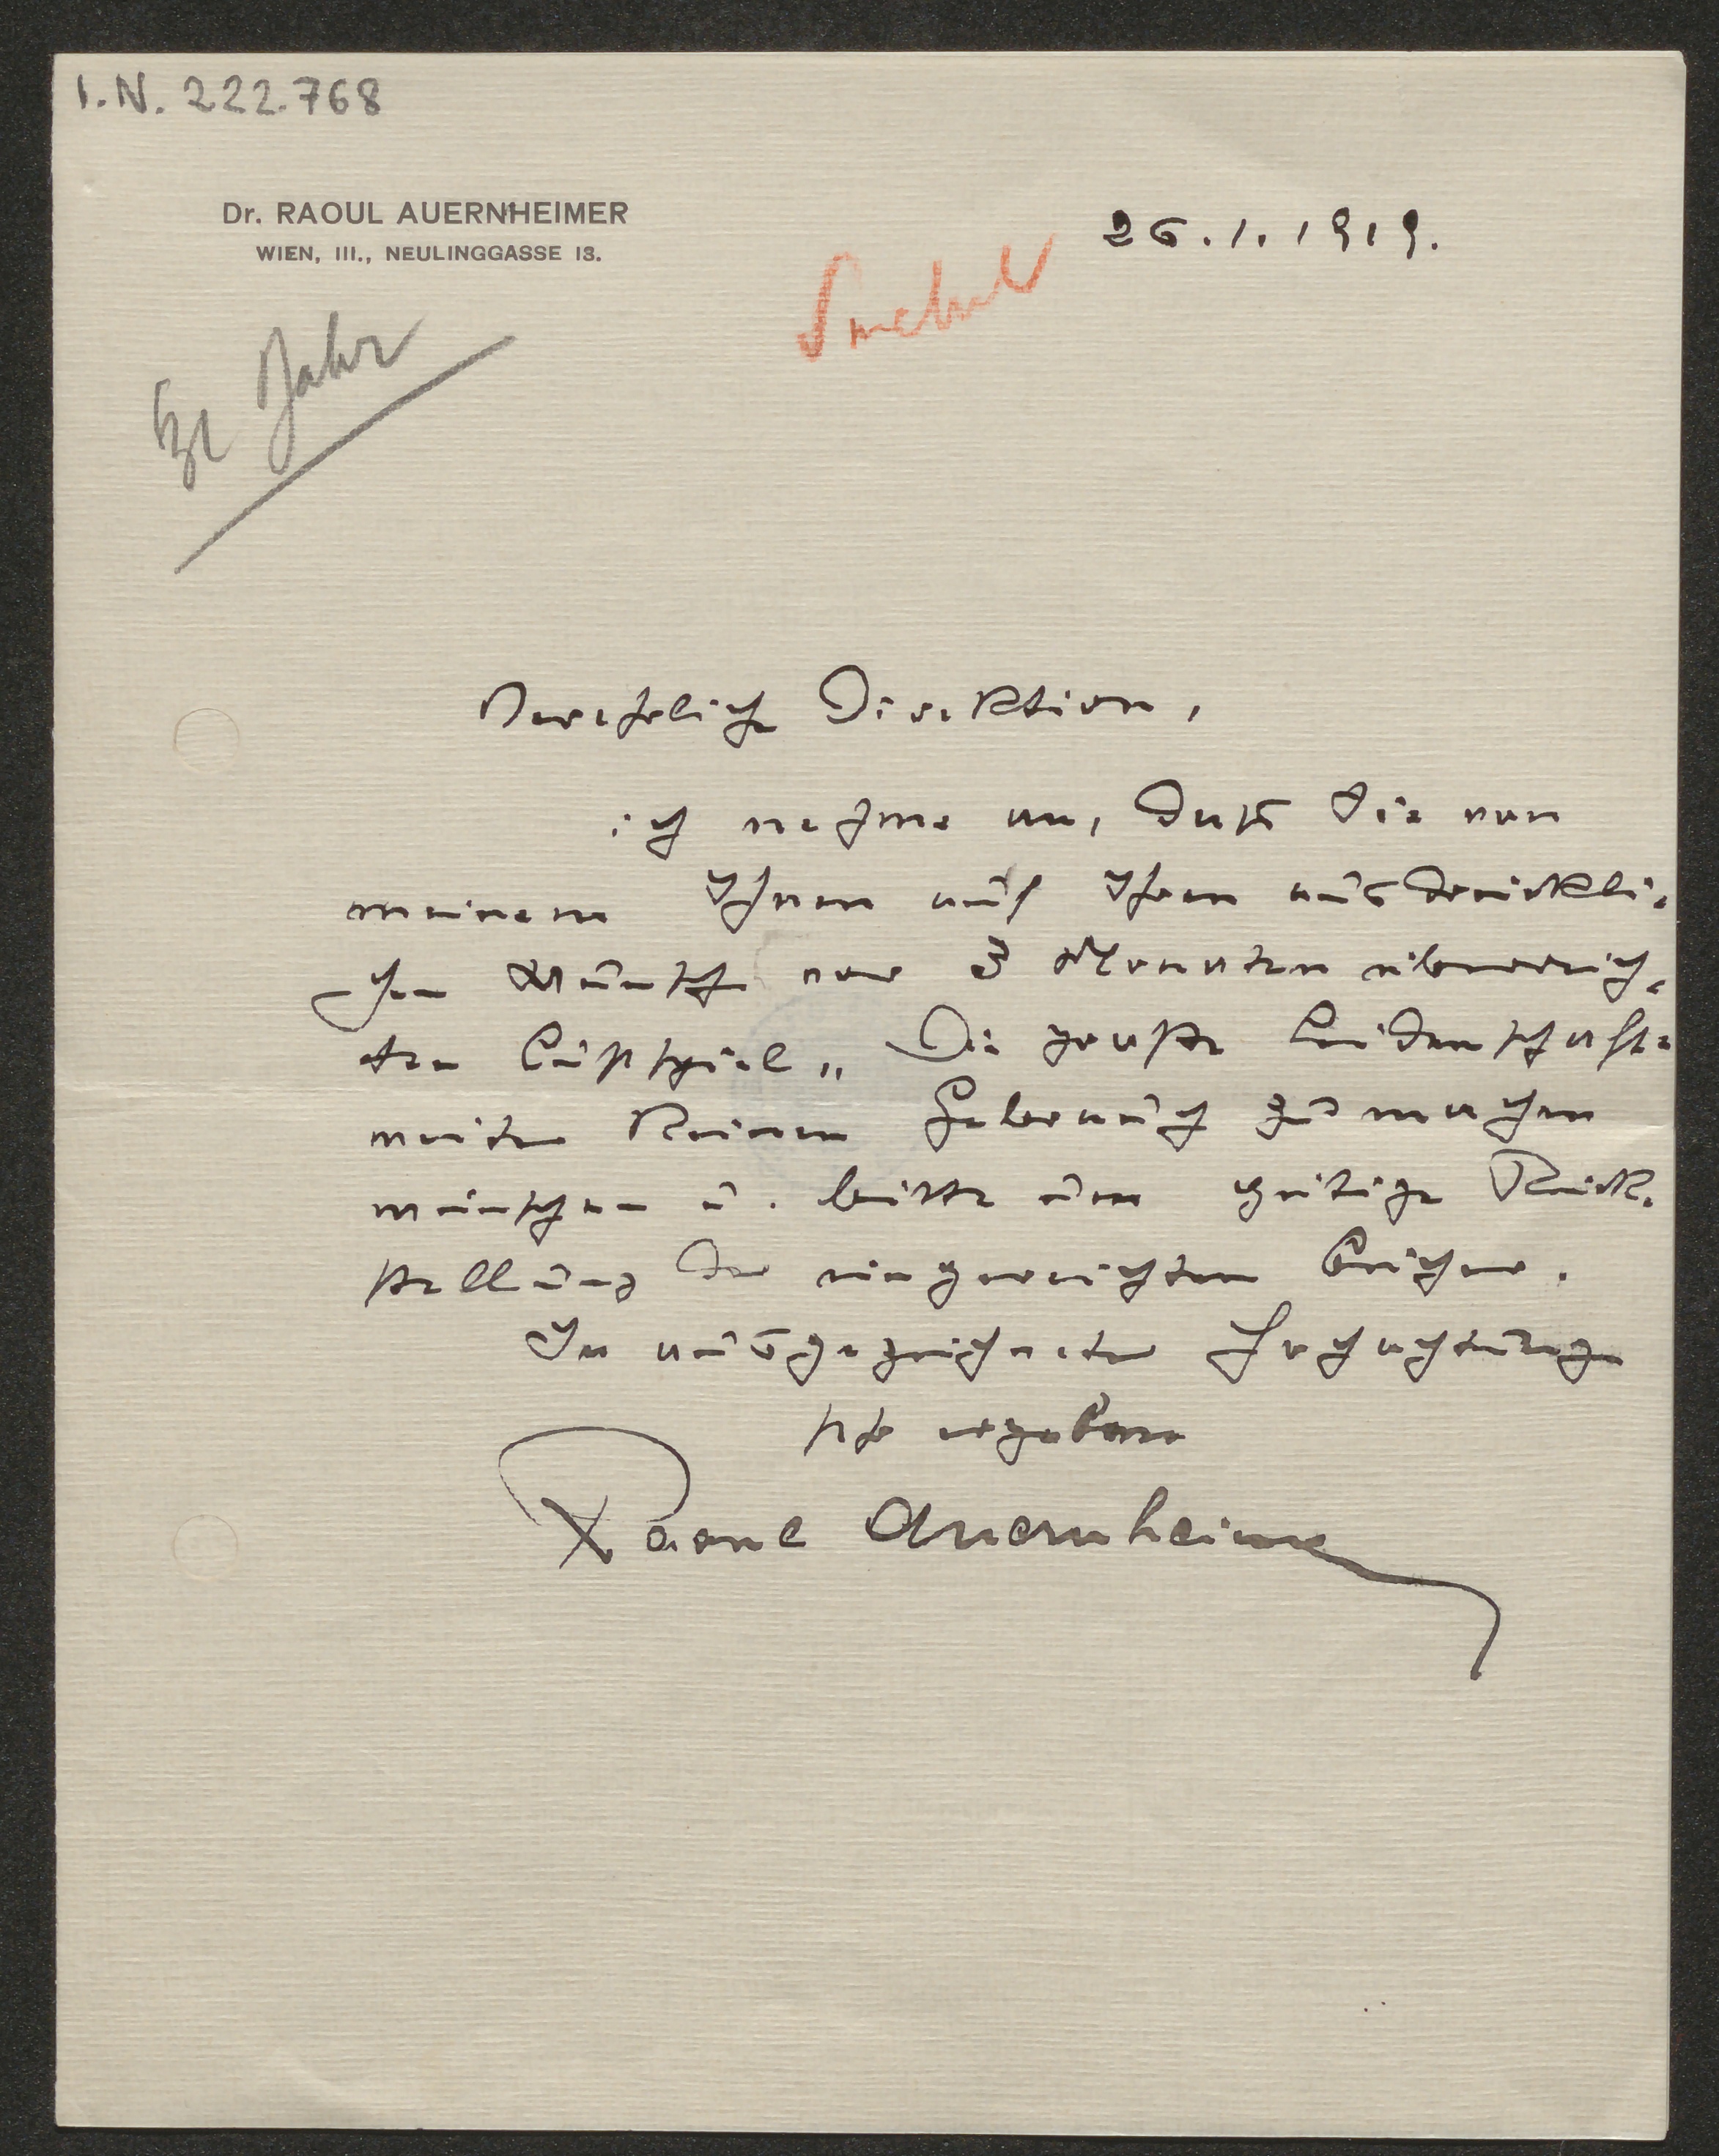 I.N. 222.768
Dr. RAOUL AUERNHEIMER
WIEN, III., NEULINGGASSE 13.
26.1.1919.
Jahr
Verehrliche Direktion,
ich nehme an, daß Sie von
meinem Ihnen auf Ihren ausdrückli-
chen Wunsch vor 3 Monaten überreich-
ten Lustspiel „Die große Leidenschaft"
weiter keinen Gebrauch zu machen
wünschen u. bitte um gütige Rück-
stellung der eingereichten Bücher.
In ausgezeichneter Hochachtung
sehr ergeben
Raoul Auernheimer